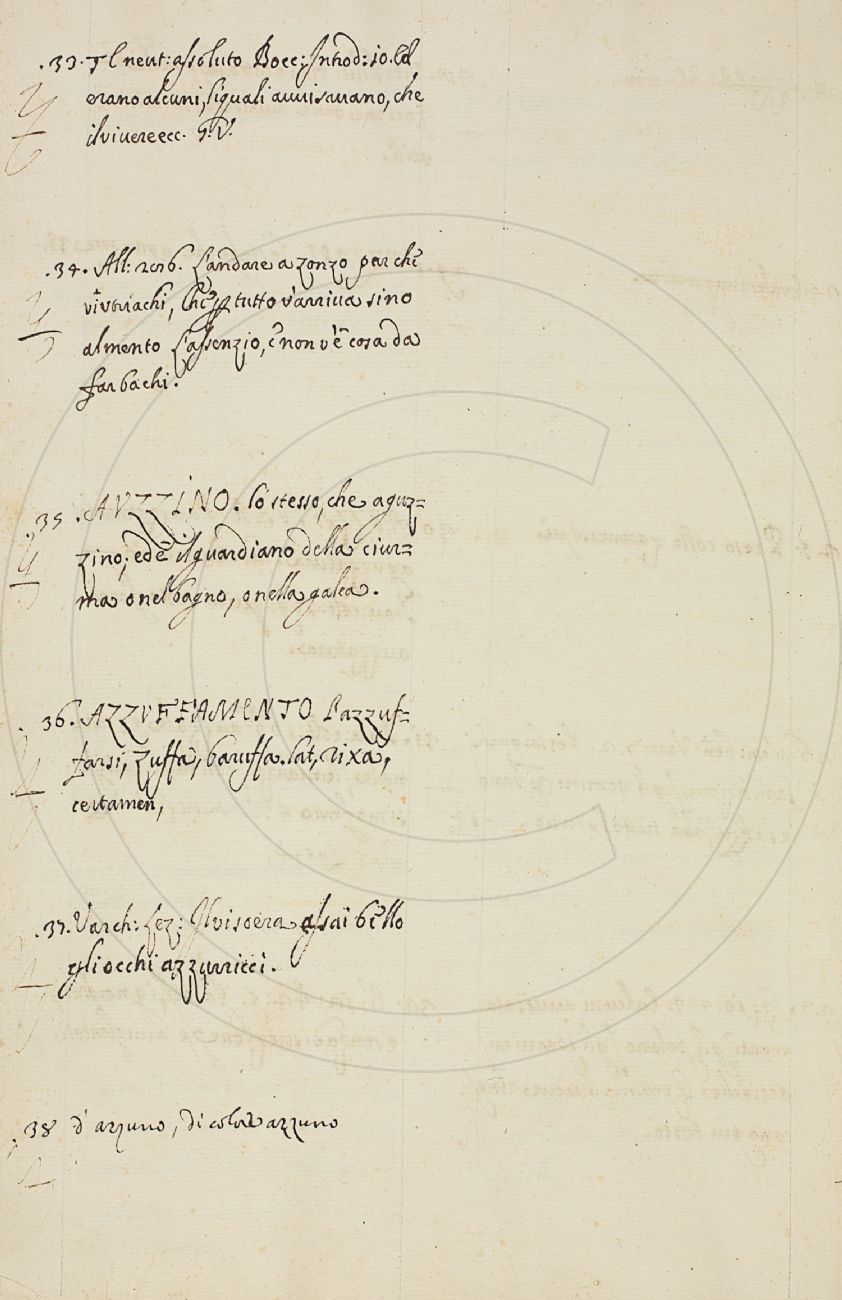 .33. Il neut: assoluto Bocc: Introd: 10. Ed
erano alcuni, li quali avvisavano, che
il vivere ecc. G. V.
.34. All: 206. L'andare a zonzo par ch'e'
tutto v'arriva sino
al mento l'assenzio, e non v'è cosa da
far bachi.
.35. AVZZINO. lo stesso, che aguz=
zino; ed è il guardiano della ciur=
ma o nel bagno, o nella galea.
36. AZZVFFAMENTO L'azzuf=
farsi, zuffa, baruffa. lat, rixa,
certamen,
.37. Varch: Lez: Il viso era assai bello
gli occhi azzurricci.
.38 d'azzurro, di color azzurro